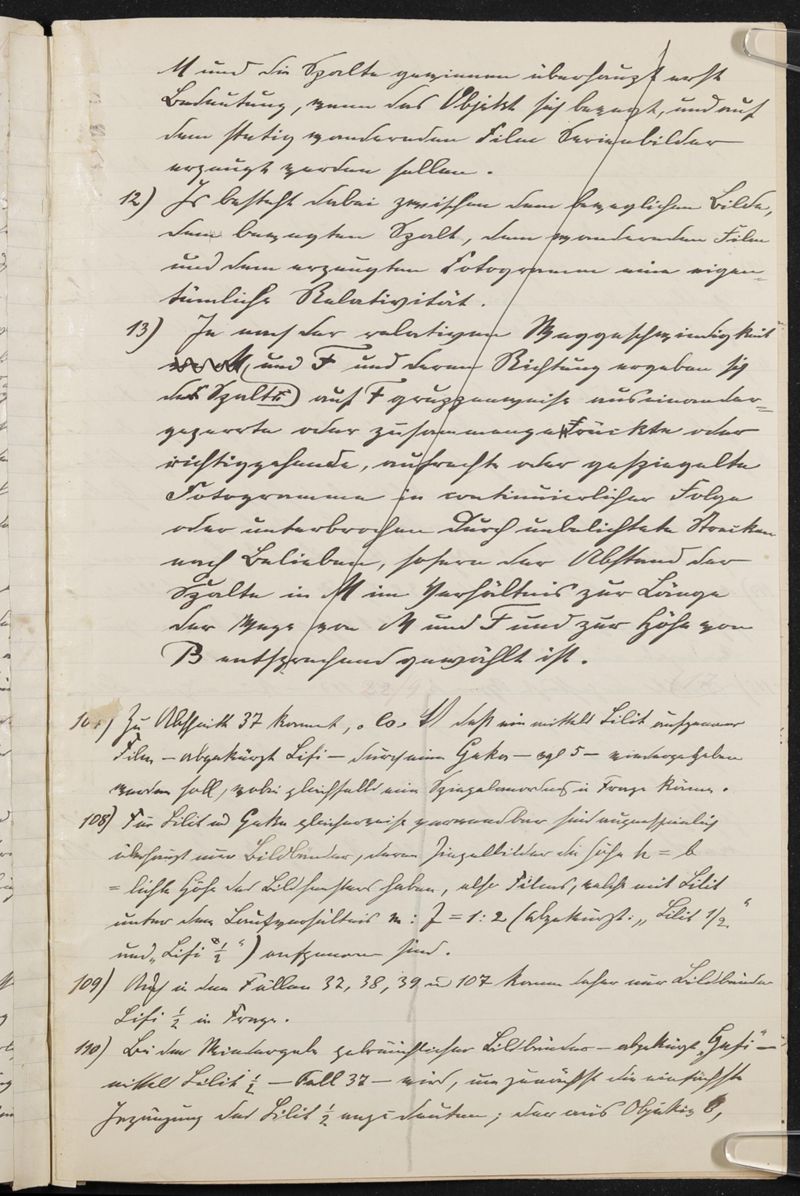 M und die Spalte gewinnen überhaupt erst
Bedeutung, wenn das Objekt sich bewegt, und auf
dem stetig wandernden Film Serienbilder
erzeugt werden sollen.
12) Es besteht dabei zwischen dem beweglichen Bilde,
dem bewegten Spalt, dem wandernden Film
und dem erzeugten Fotogramm eine eigen-
tümliche Relativität.
13) Je nach der relativen Weggeschwindigkeit
und F und deren Richtung ergeben sich
des Spalts) auf F gruppenweise auseinander-
gezerrte oder zusammengedrückte oder
richtiggehende, aufrechte oder gespiegelte
Fotogramme in continuierlicher Folge
oder unterbrochen durch unbelichtete Strecken
nach Belieben, sofern der Abstand der
Spalte in M im Verhältnis zur Länge
der Wege von M und F und zur Höhe von
B entsprechend gewählt ist.
107) Zu Abschnitt 37 kommt, daß ein mittels Lilit aufgenommener
Film – abgekürzt Lifi – durch eine Geka – vgl 5 – wiedergegeben
werden soll, wobei gleichfalls eine in Frage käme.
108) Für Lilit und Geka gleicherweise verwendbar sind augenscheinlich
überhaupt nur Bildbänder, deren Einzelbilder die Höhe h = b
= lichte Höhe des Bildfensters haben, also Films, welche mit Lilit
unter dem Laufverhältnis m : f = 1 : 2 (abgekürzt: „Lilit 1/2“
und „Lifi 1/2“) aufgenommen sind.
109) Auch in den Fällen 32, 38, 39 u 107 kommen daher nur Bildbänder
Lifi 1/2 in Frage.
110) Bei der Wiedergabe gebräuchlicher Bildbänder – abgekürzt „Gefi“ –
mittels Lilit 1/2 – Fall 37 – wird, um zunächst die einfachste
der Lilit 1/2 anzudeuten; der aus Objektiv